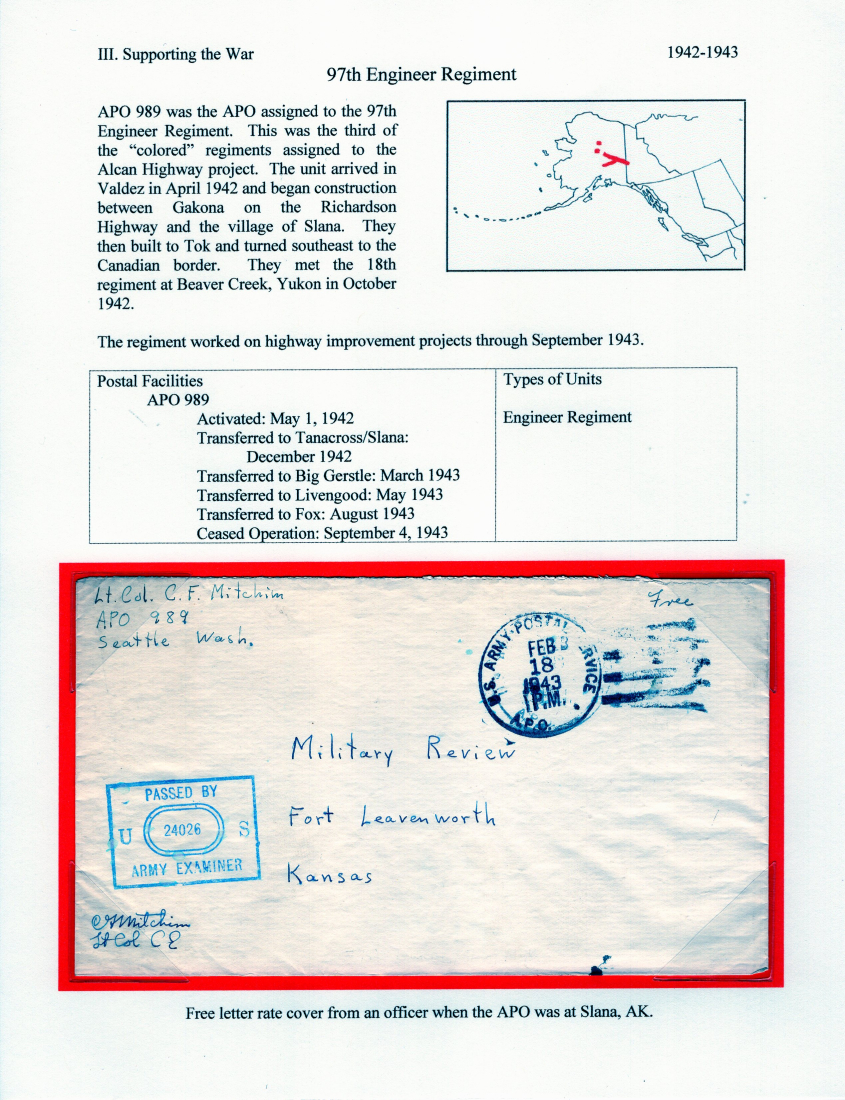 III. Supporting the War 1942-1943
97th Engineer Regiment
APO 989 was the APO assigned to the 97th
Engineer Regiment. This was the third of
the “colored” regiments assigned to the
Alcan Highway project. The unit arrived in
Valdez in April 1942 and began construction
between Gakona on the Richardson
Highway and the village of Slana. They
then built to Tok and turned southeast to the
Canadian border. They met the 18th
regiment at Beaver Creek, Yukon in October
1942.
The regiment worked on highway improvement projects through September 1943.
Postal Facilities
APO 989
Activated: May 1, 1942
Transferred to Tanacross/Slana:
December 1942
Transferred to Big Gerstle: March 1943
Transferred to Livengood: May 1943
Transferred to Fox: August 1943
Ceased Operation: September 4, 1943
Types of Units
Engineer Regiment
Lt. Col. C. F. Mitchim
APO 989
Seattle Wash.
Free
U.S. ARMY POSTAL SERVICE
FEB
18
1943
P.M.
A.P.O.
Military Review
Fort Leavenworth
Kansas
PASSED BY
U 24026 S
ARMY EXAMINER
CFMitchim
Lt Col CE
Free letter rate cover from an officer when the APO was at Slana, AK.